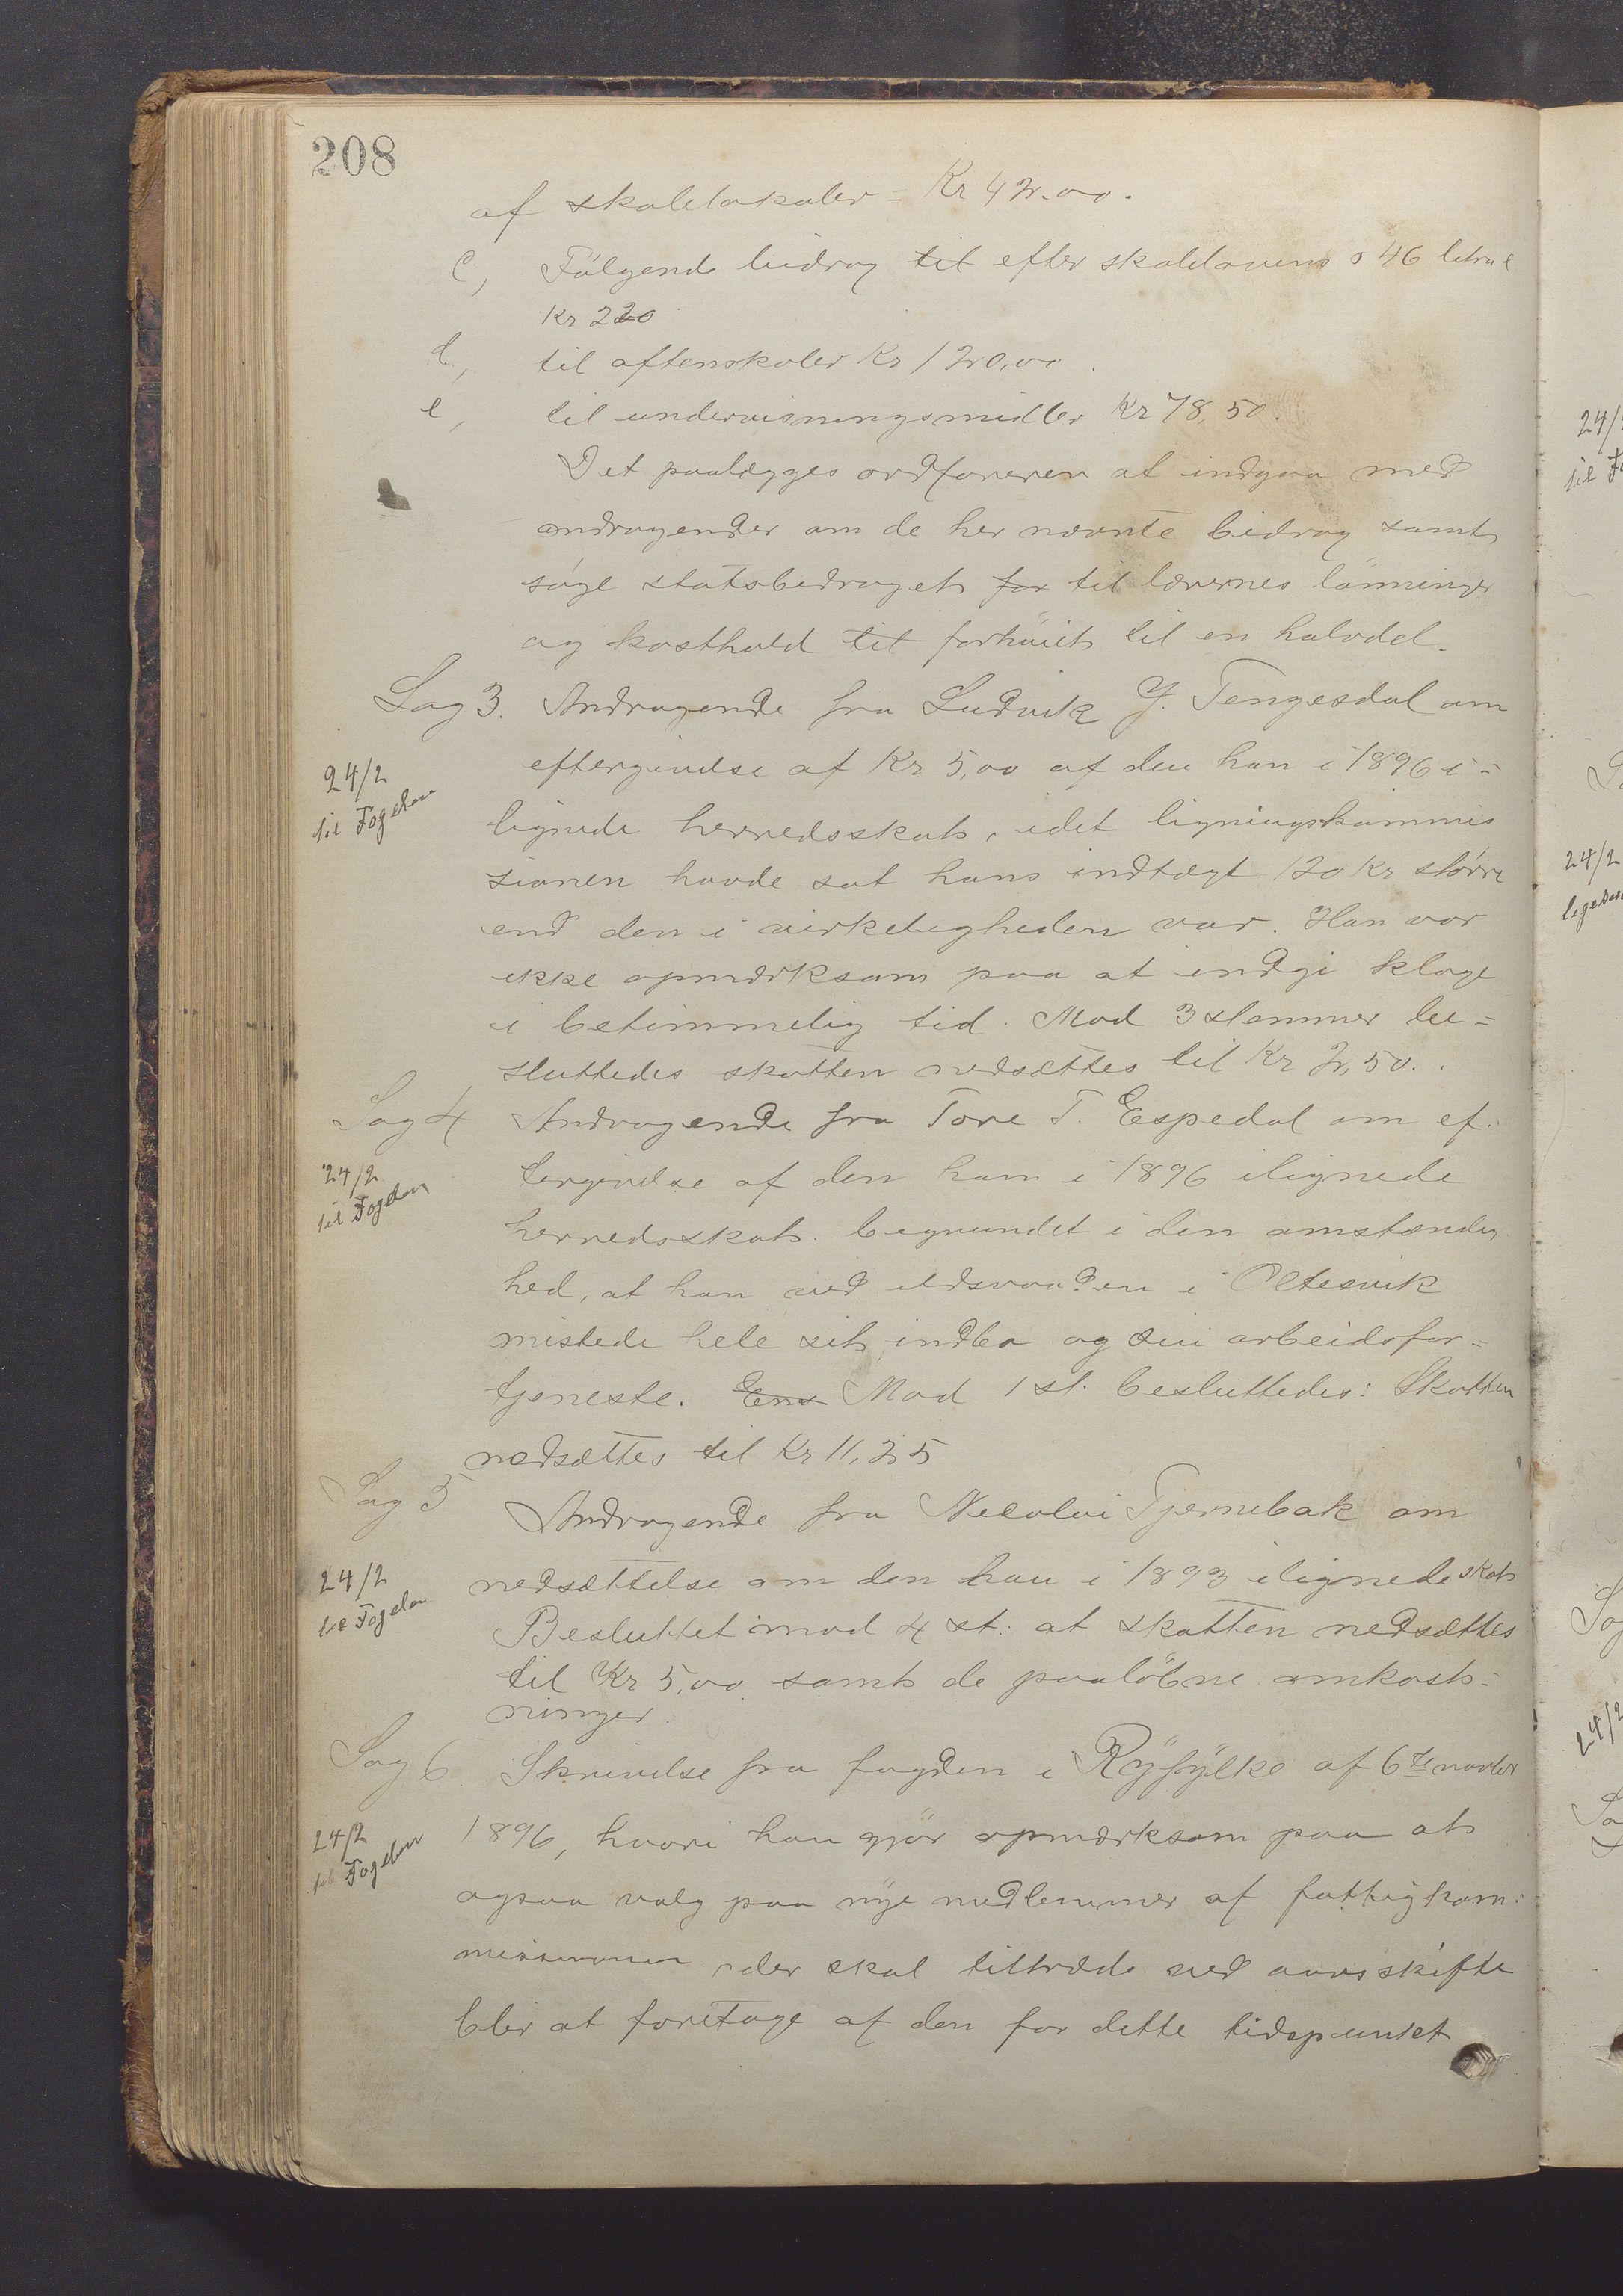 208
af skolelokaler = Kr 42.00.
c, Følgende bidrag til efter skolelovens § 46 litra c
Kr 220
d, til aftenskoler Kr 120,00.
e, til undervisningsmidler Kr 78,50.
Det paalægges ordføreren at indgaa med
andragender om de her nævnte bidrag samt
søge statsbedraget for til lærernes lönninger
og kosthold til forhöiet til en halvdel.
Sag 3. Andragende fra Ludvik J. Tengesdal om
eftergivelse af Kr 5,00 af den han i 1896 i=
24/2
til Fogden
lignede herredsskat, idet ligningskommis
sionen havde sat hans indtægt 120 Kr större
end den i virkeligheden var. Han var
ikke opmærksom paa at indgi klage
i betimmelig tid. Mod 3 stemmer be=
sluttedes skatten nedsættes til Kr 2,50.
Sag 4 Andragende fra Tore T. Espedal om ef=
24/2
til Fogden
tergivelse af den ham i 1896 ilignede
herredsskat. begrundet i den omstændig
hed, at han ved ildsvaaden i Oltesvik
mistede hele sit indbo og sin arbeidsfor=
tjeneste. Ens Mod 1 st. besluttedes: Skatten
nedsættes til Kr 11,25
Sag 5
Andragende fra Nicolai Tjernebak om
24/2
til Fogden
nedsættelse om den han i 1893 ilignede skat
Besluttet mod 4 st: at skatten nedsættes
til Kr 5,00 samt de paalöbne omkost=
ninger.
Sag 6. Skrivelse fra fogden i Ryfylke af 6te novber
24/2
til Fogden
1896, hvori han gjör opmærksom paa at
ogsaa valg paa nye medlemmer af fattigkom=
missionen der skal tiltræde ved aarsskifte
blir at foretage af den for dette tidspunkt
24/2